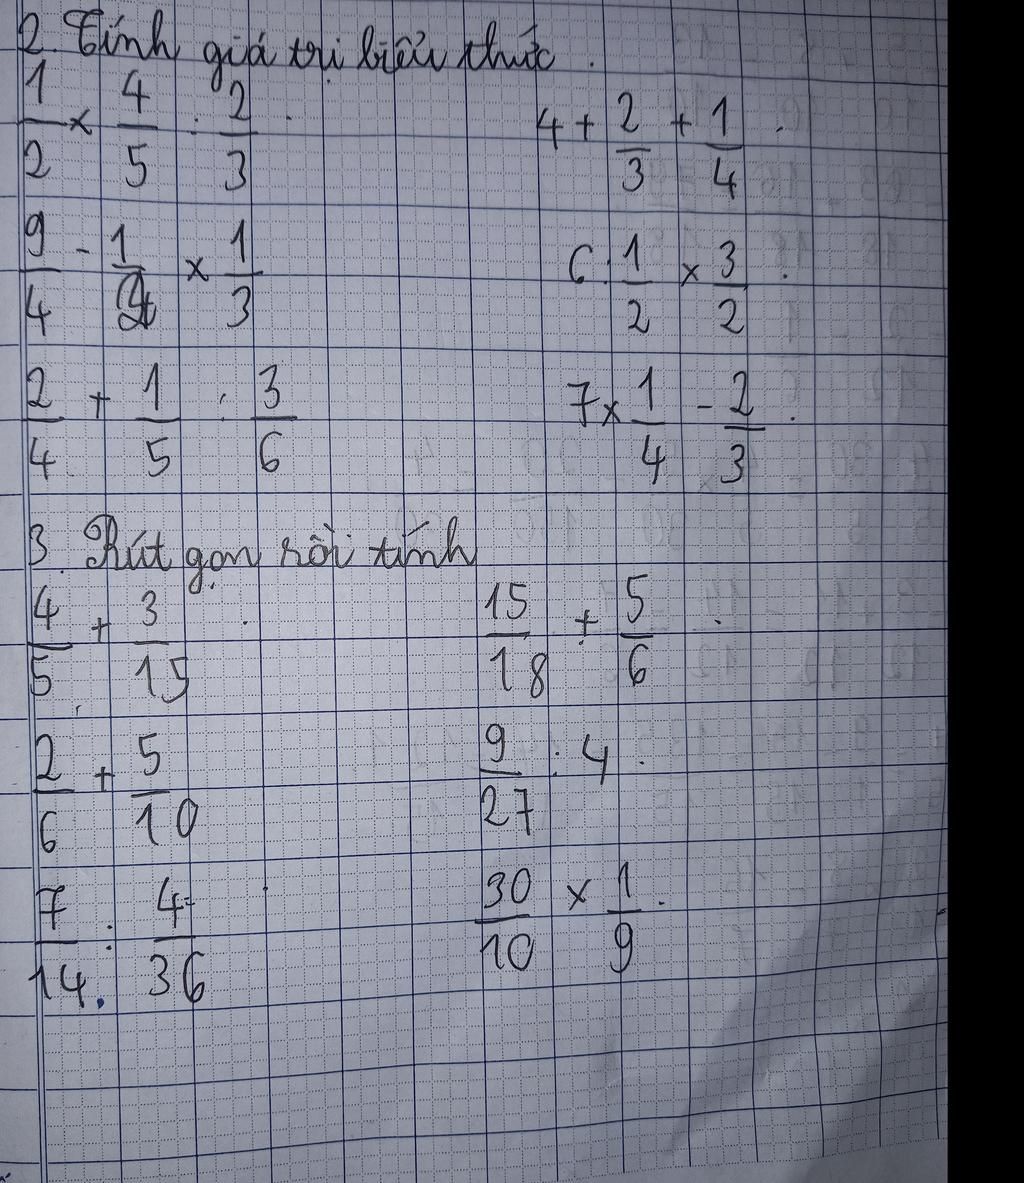 2. Tính giá trị biểu thức.
1/2 × 4/5 : 2/3 4 + 2/3 + 1/4
9/4 - 1/ × 1/3 6 : 1/2 × 3/2
2/4 + 1/5 : 3/6 7 × 1/4 - 2/3
3. Rút gọn rồi tính
4/5 + 3/15 15/18 + 5/6
2/6 + 5/10 9/27 : 4
7/14 : 4/36 30/10 × 1/9